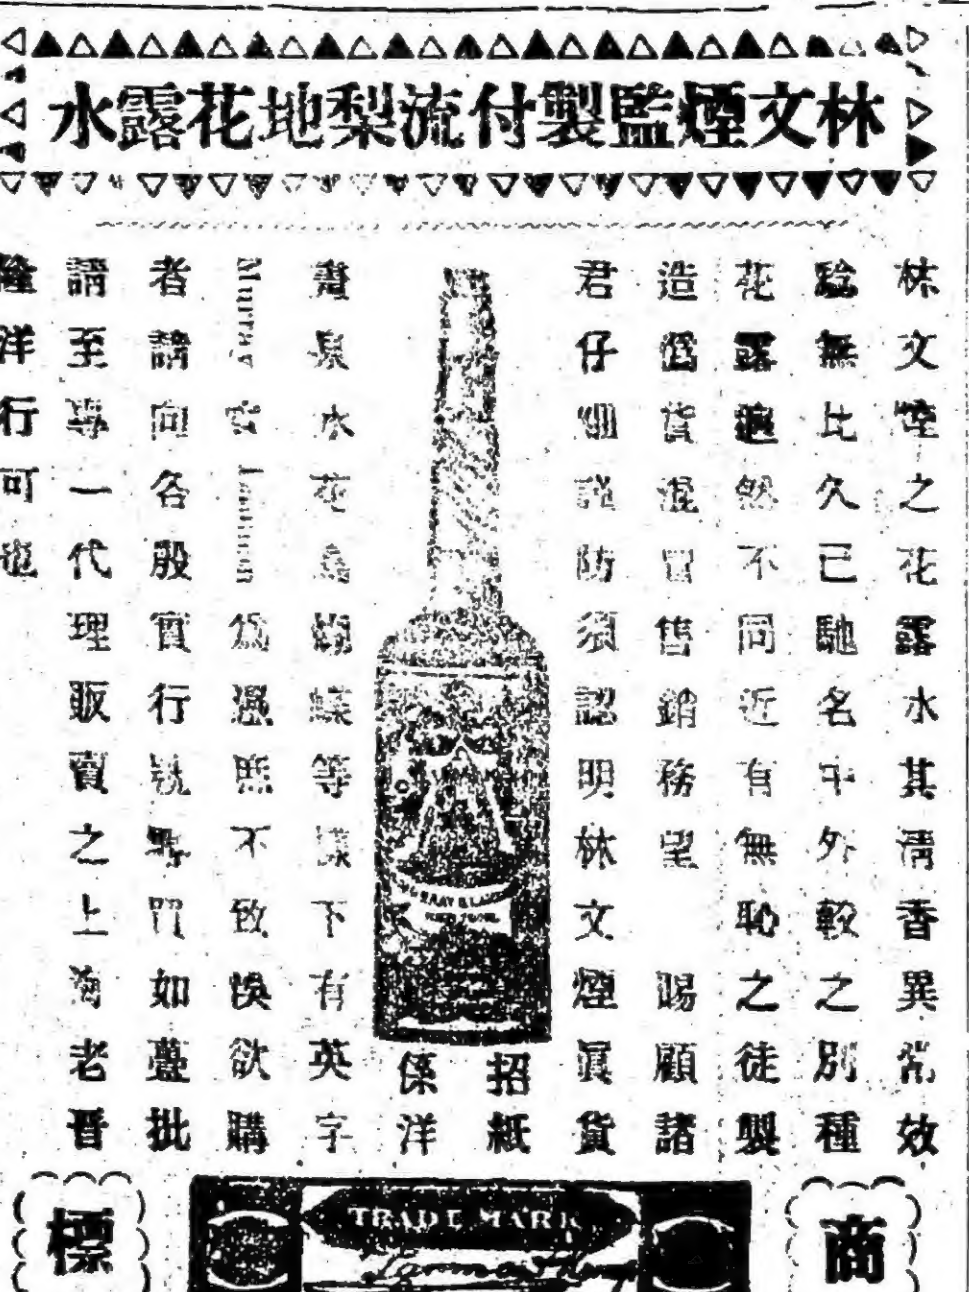 林文煙監製付流梨地花露水
林文煙之花露水其清香異常效
驗無比久已馳名中外較之別種
花露迥然不同近有無恥之徒製
造偽貨混冒售銷務望 賜顧諸
君仔細謹防須認明林文煙眞貨
招紙
係洋
畫泉水花鳥蝴蝶等樣下有英字
Murray 會 Lanman 爲憑庶不致悞欲購
者請向各殷實行號零買如躉批
請至專一代理販賣之上海老晋
隆洋行可也
商標
TRADE MARK